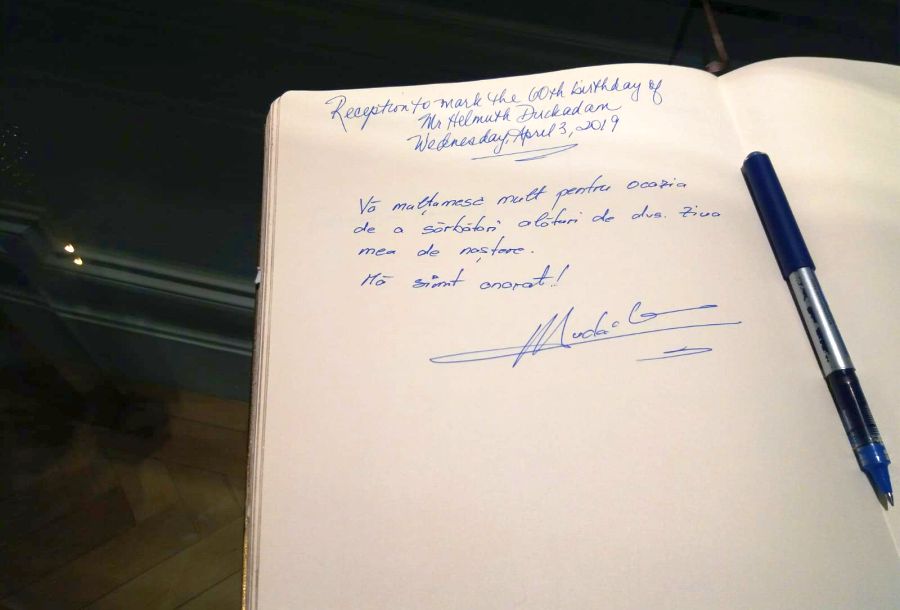 Reception to mark the 60th birthday of
Mr Helmuth Duckadam
Wednesday, April 3, 2019
Vă mulțumesc mult pentru ocazia
de a sărbători alături de dvs. ziua
mea de naștere.
Mă simt onorat!